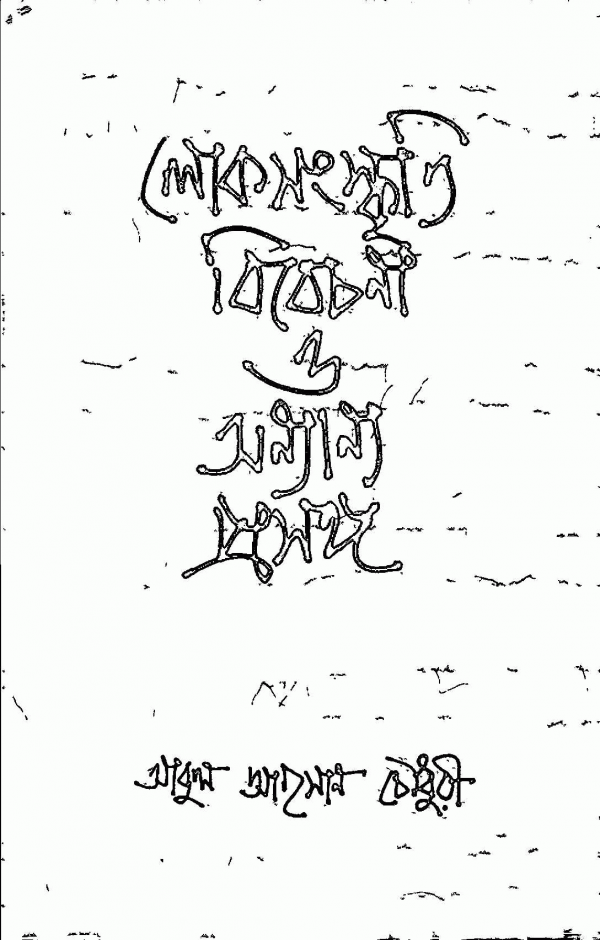 লোকসংস্কৃতি
বিবেচনা
ও
অন্যান্য
প্রসঙ্গ
আবুল আহসান চৌধুরী